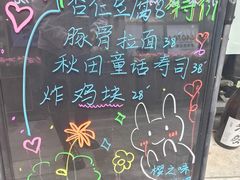 豆腐8 特价
豚骨拉面 38
秋田童话寿司 38
炸鸡块 28
樱之味